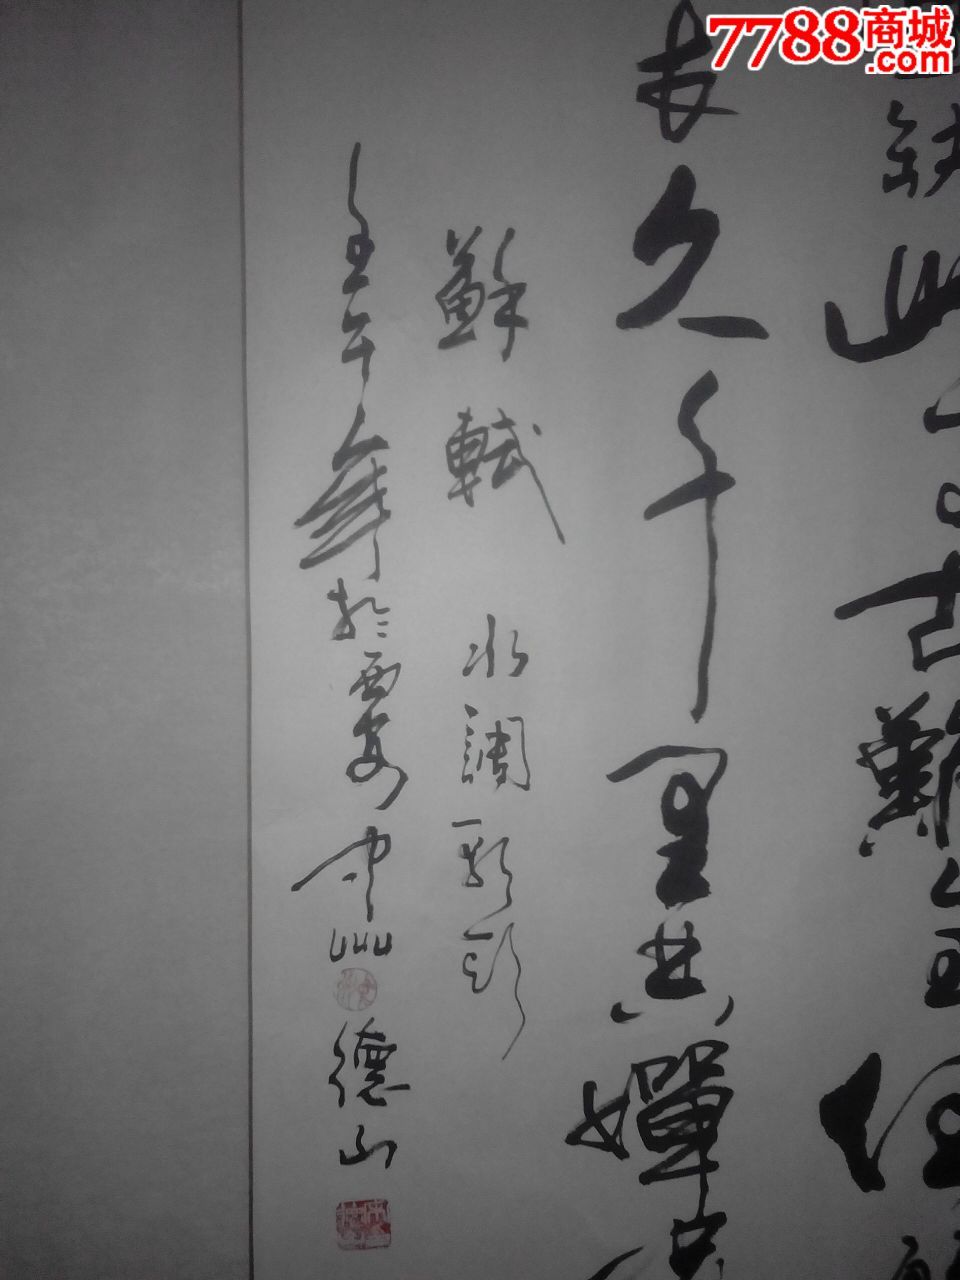 缺此事古難全但願
長久千里共嬋娟
蘇軾 水調歌頭
壬午年於西安
德山
7788商城
.com